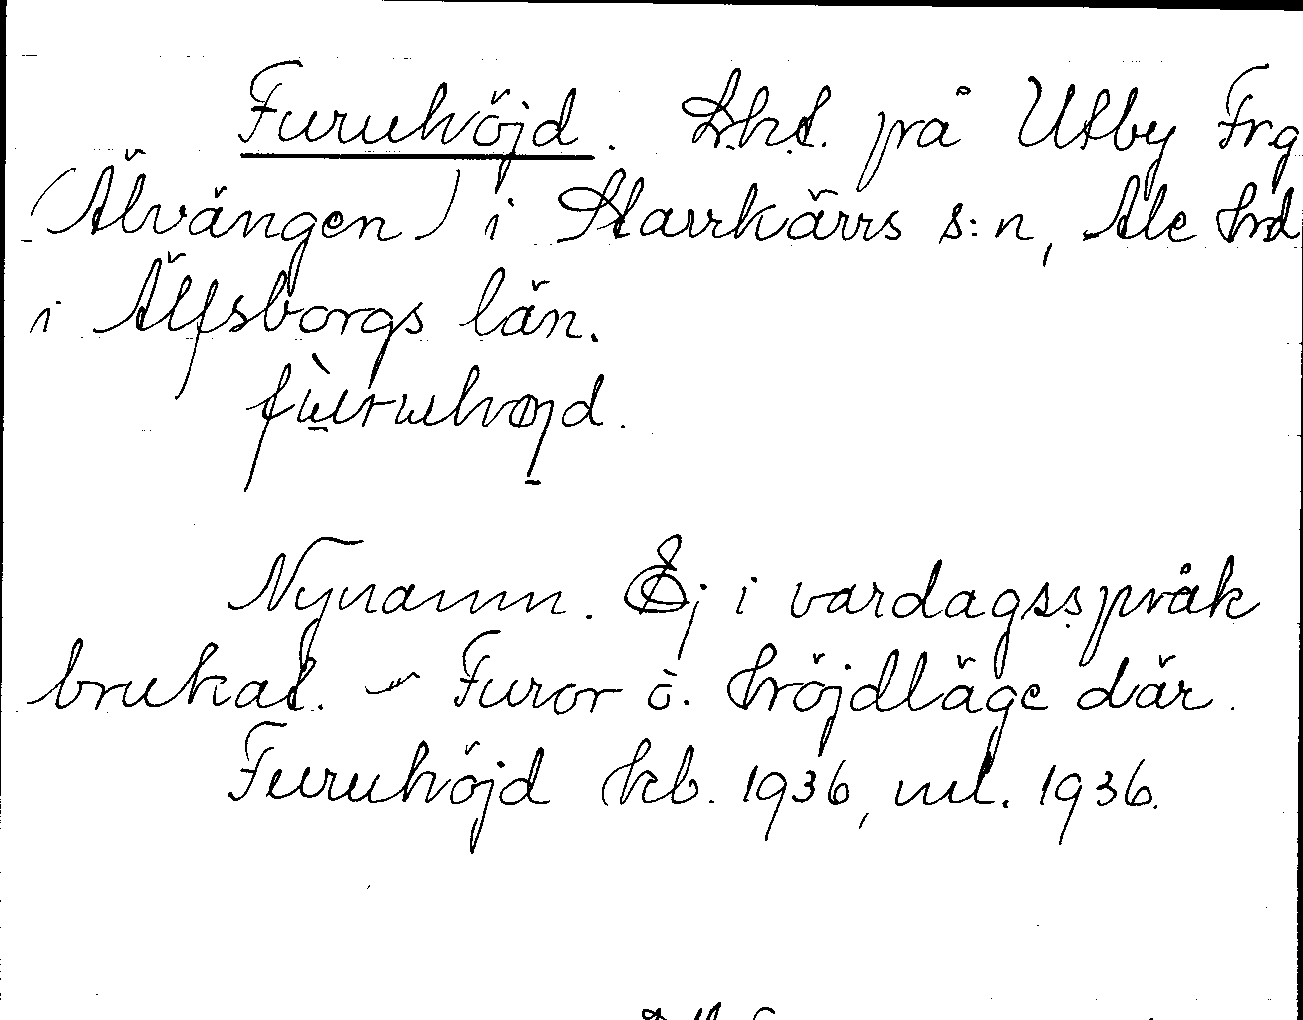 Furuhöjd. Lht. på Utby Frg
(Älvängen) i Starrkärrs s:n, Ale hd
i Älfsborgs län.
fùruhøjd.
Nynamn. Ej i vardagsspråk
brukat. - Furor o. höjdläge där.
Furuhöjd kb. 1936, ml. 1936.